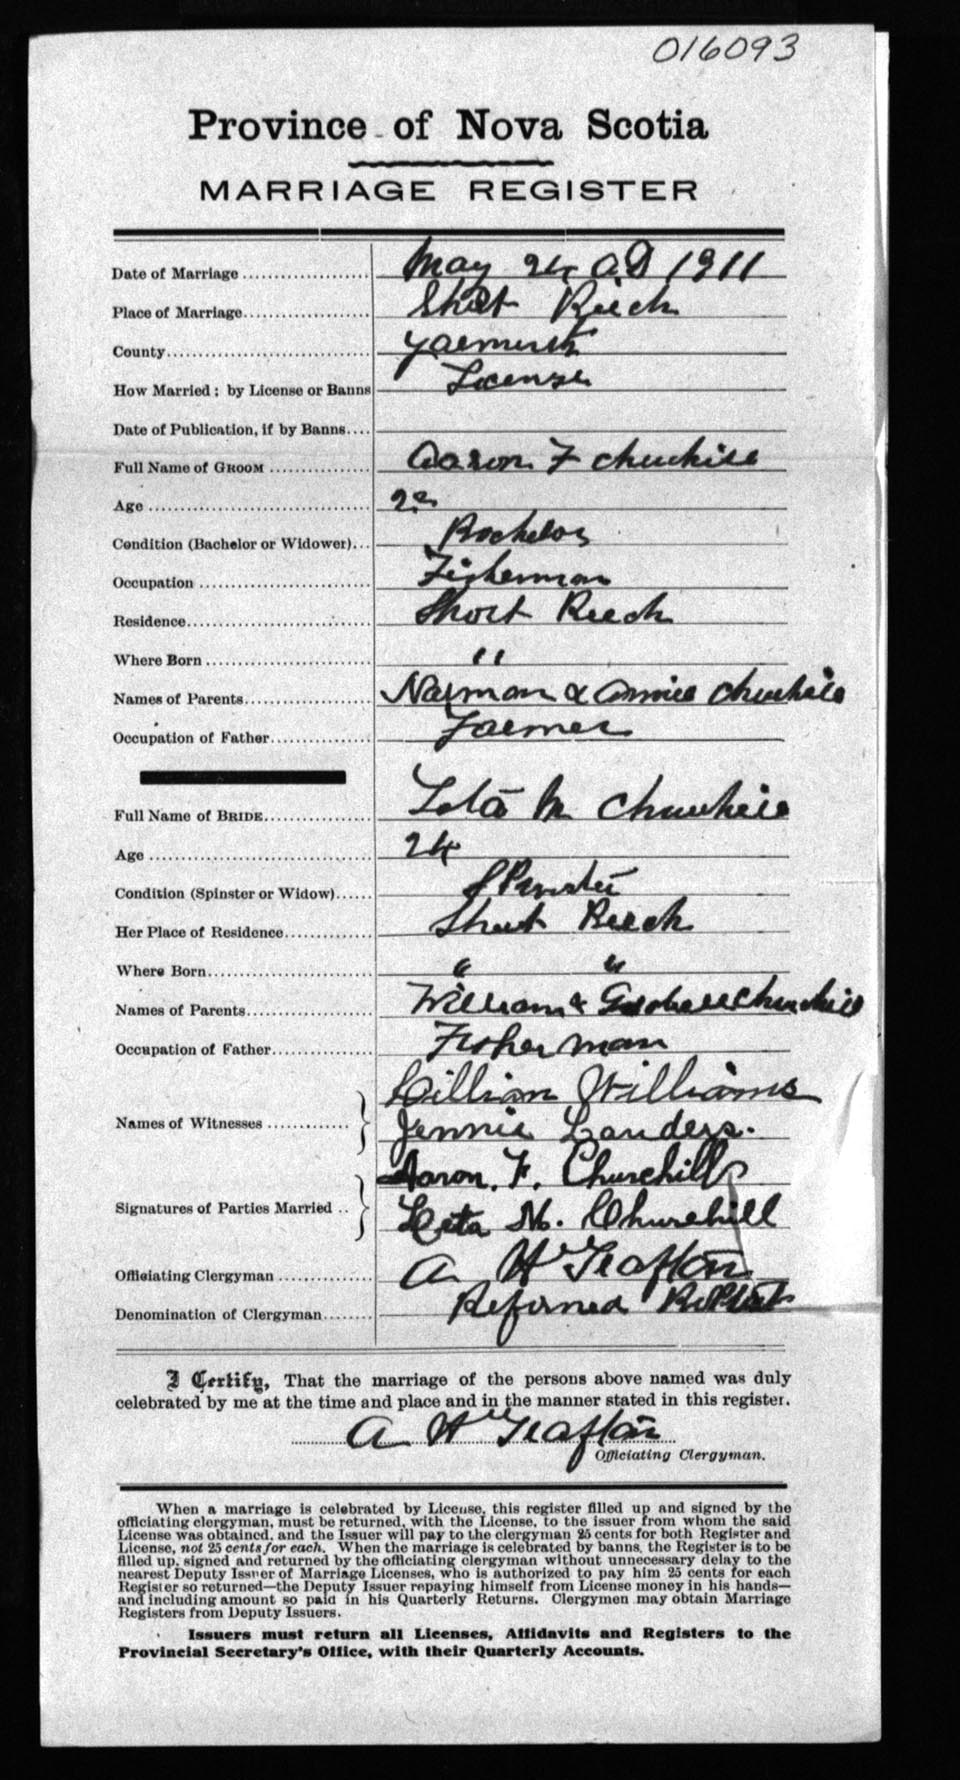 016093
Province of Nova Scotia
MARRIAGE REGISTER
Date of Marriage .................... May 24 A.D 1911
Place of Marriage.................... Short Reech
County................................ Yarmouth
How Married: by License or Banns License
Date of Publication, if by Banns....
Full Name of GROOM ................ Aaron F Churchill
Age ...................................
Condition (Bachelor or Widower)... Bachelor
Occupation ........................... Fisherman
Residence............................. Short Reech
Where Born .......................... "
Names of Parents.................... Norman & Annie Churchill
Occupation of Father................ Farmer
Full Name of BRIDE................. M Churchill
Age ................................... 24
Condition (Spinster or Widow)...... Spinster
Her Place of Residence.............. Short Beech
Where Born.......................... " "
Names of Parents.................... William & Churchill
Occupation of Father................ Fisherman
Names of Witnesses ............. Lillian Williams
Jennie Landers.
Signatures of Parties Married .. Aaron. F. Churchill
Leta M. Churchill
Officiating Clergyman ............... A H
Denomination of Clergyman........ Reformed Baptist
I Certify, That the marriage of the persons above named was duly
celebrated by me at the time and place and in the manner stated in this register.
A H
Officiating Clergyman.
When a marriage is celebrated by License, this register filled up and signed by the
officiating clergyman, must be returned, with the License, to the issuer from whom the said
License was obtained, and the Issuer will pay to the clergyman 25 cents for both Register and
License, not 25 cents for each. When the marriage is celebrated by banns, the Register is to be
filled up, signed and returned by the officiating clergyman without unnecessary delay to the
nearest Deputy Issuer of Marriage Licenses, who is authorized to pay him 25 cents for each
Register so returned—the Deputy Issuer repaying himself from License money in his hands—
and including amount so paid in his Quarterly Returns. Clergymen may obtain Marriage
Registers from Deputy Issuers.
Issuers must return all Licenses, Affidavits and Registers to the
Provincial Secretary's Office, with their Quarterly Accounts.